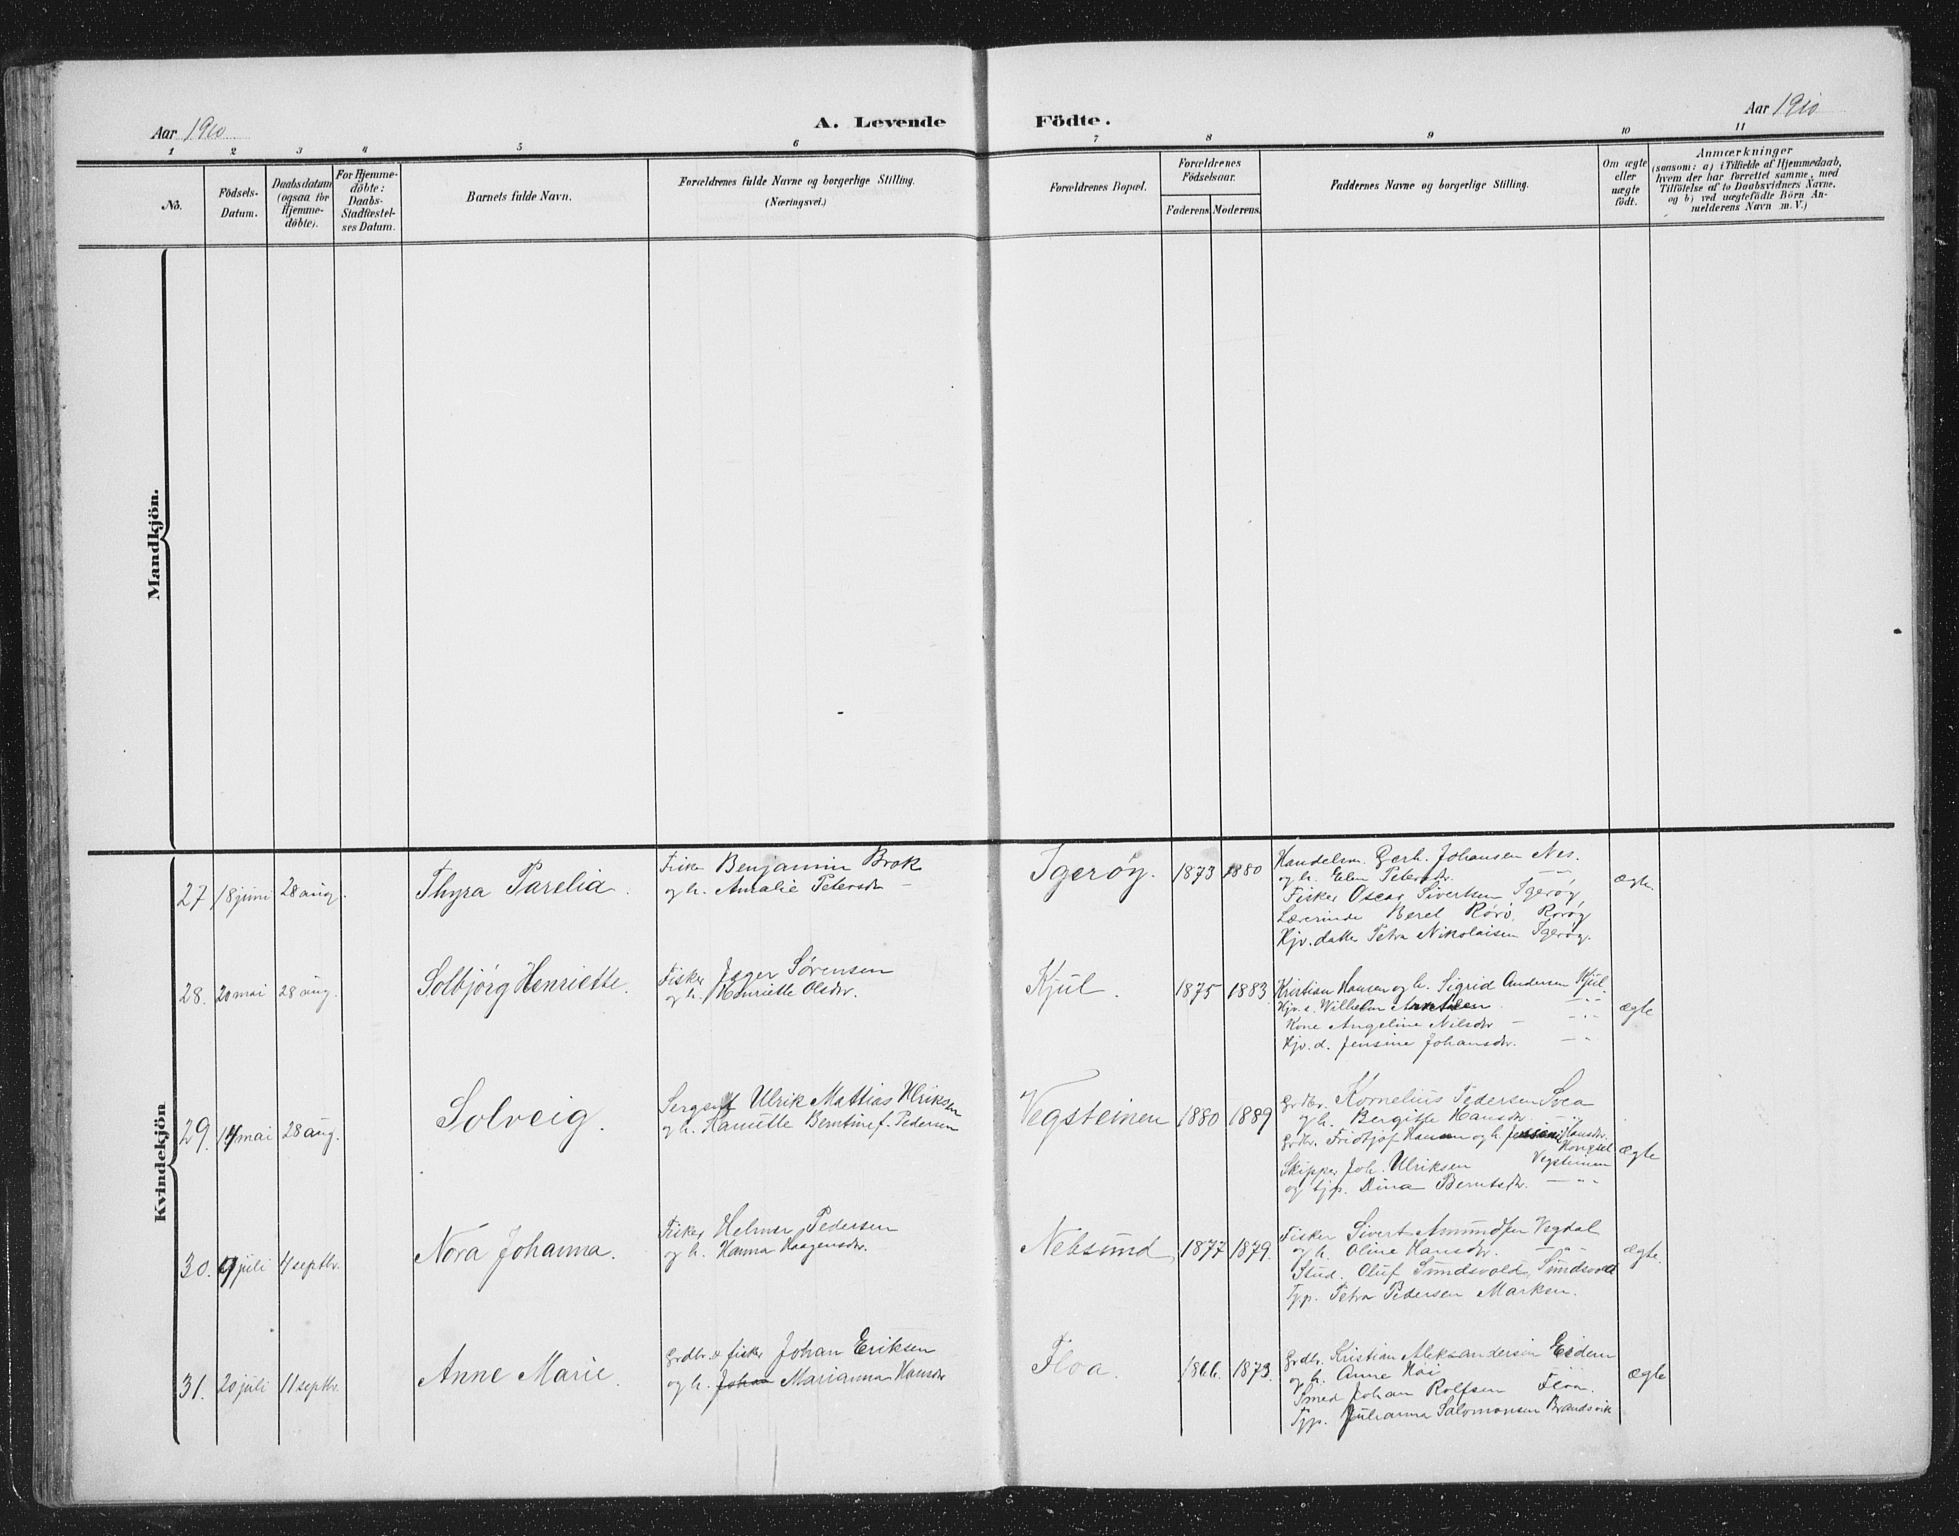 Aar 1910
A. Levende Födte.
Aar 1910
1 2 3 4 5 6 7 8 9 10 11
No.
Födsels-
Datum.
Daabsdatum
(ogsaa for
Hjemme-
döbte).
For Hjemme-
döbte:
Daabs-
Stadfæstel-
ses Datum.
Barnets fulde Navn.
Forældrenes fulde Navne og borgerlige Stilling.
(Næringsvei.)
Forældrenes Bopæl.
Forældrenes
Födselsaar.
Faderens. Moderens.
Faddernes Navne og borgerlige Stilling.
Om ægte
eller
uægte
födt.
Anmærkninger
(saasom: a) i Tilfælde af Hjemmedaab,
hvem der har forrettet samme, med
Tilföielse af to Daabsvidners Navne.
og b) ved uægtefödte Börn An-
melderens Navn m. V.)
Mandkjön.
Kvindekjön
27 18 juni 28 aug. Thyra Parelia. Fisker Benjamin Brok
og h. Amalie Petersdr
Igerøy. 1873 1880 ægte
Handelsm. Gerh. Johansen Nes.
og h. Elen Petersdr. —"—
Fisker Oscar Sivertsen Igerøy
Lærerinde Beret Rørø, Rørøy
Hjv. datter Petra Nikolaisen Igerøy.
28. 20 mai 28 aug. Solbjørg Henriette. Fisker Jeger Sørensen
og h. Henriette Olsdr.
Kjul. 1875 1883 ægte
Kristian Hansen og h. Sigrid Andersen Kjul.
Hjv. s. Wilhelm —"—
Kone Angeline Nilsdr — —"—
Hjv. d. Jensine Johansdr. —"—
29. 14 mai 28 aug. Solveig. Sergent Ulrik Mattias Ulriksen
og h. Hanette Berntine f. Pedersen
Vegsteinen 1880 1889 ægte
Grdbr. Kornelius Pedersen Svea
og h. Bergitte Hansdr. —"—
Grdbr. Fridtjof Hansen og h. Hansdr.
Skipper Joh. Ulriksen Vegsteinen
og tjp. Dina Berntsdr. —"—
30. juli 4 septbr. Nora Johanna. Fisker Helmer Pedersen
og h. Hanna Haagensdr.
Nebsund 1877 1879. ægte.
Fisker Sivert Amundsen Vegdal
og h. Oline Hansdr. —"—
Stud. Oluf Sundsvold, Sundsvold
Tjp. Petra Pedersen Marken.
31. 20 juli 11 septbr. Anne Marie. Grdbr. & fisker Johan Eriksen
og h. Johan Marianna Hansdr
Floa. 1866. 1873. ægte
Grdbr. Kristian Aleksandersen Eidem
og h. Anne Høi
Smed Johan Rolfsen Floa.
Tjp. Julianna Salomonsen Brandsvik